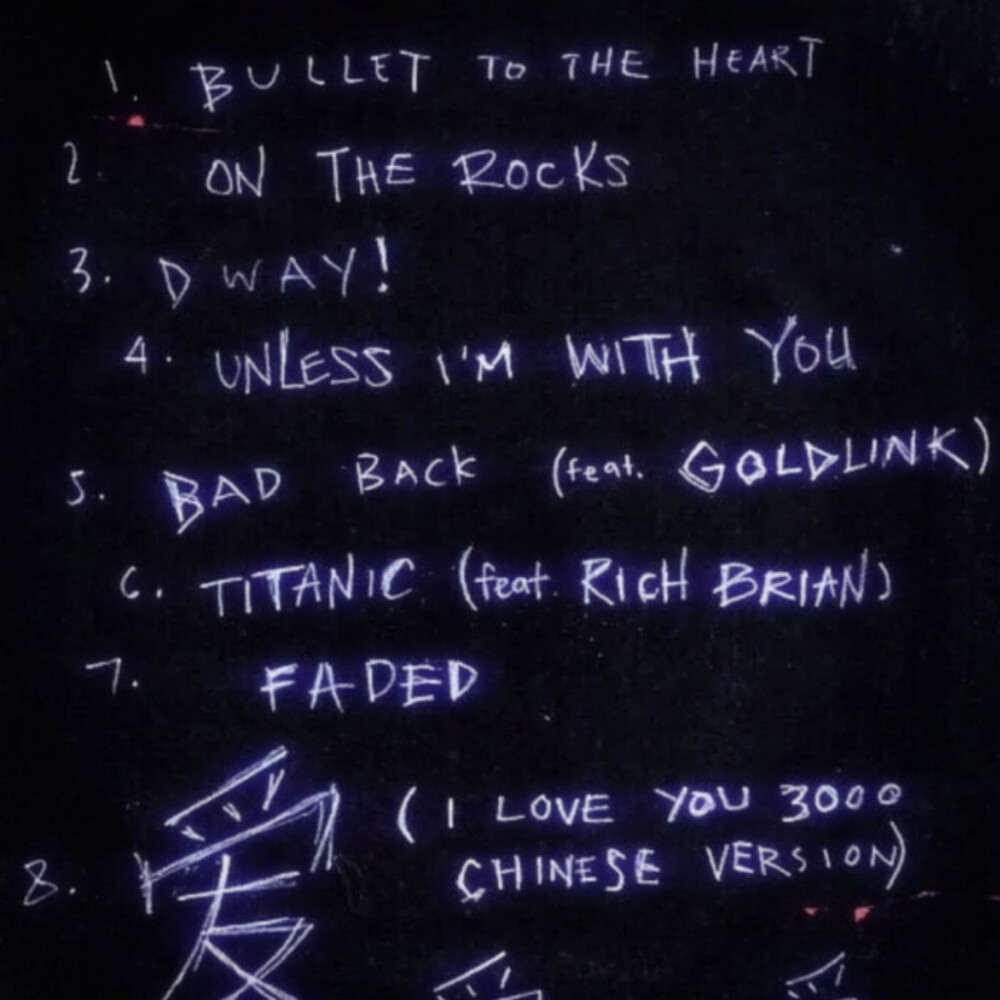 1. BULLET TO THE HEART
2. ON THE ROCKS
3. D WAY!
4. UNLESS I'M WITH YOU
5. BAD BACK (feat. GOLDLINK)
6. TITANIC (feat. RICH BRIAN)
7. FADED
8. 爱 (I LOVE YOU 3000
CHINESE VERSION)